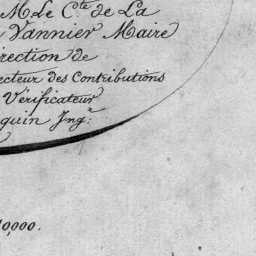 M. Le C.te de La
Vannier Maire
irection de
ecteur des Contributions
Vérificateur
quin Ing.r
0,000.